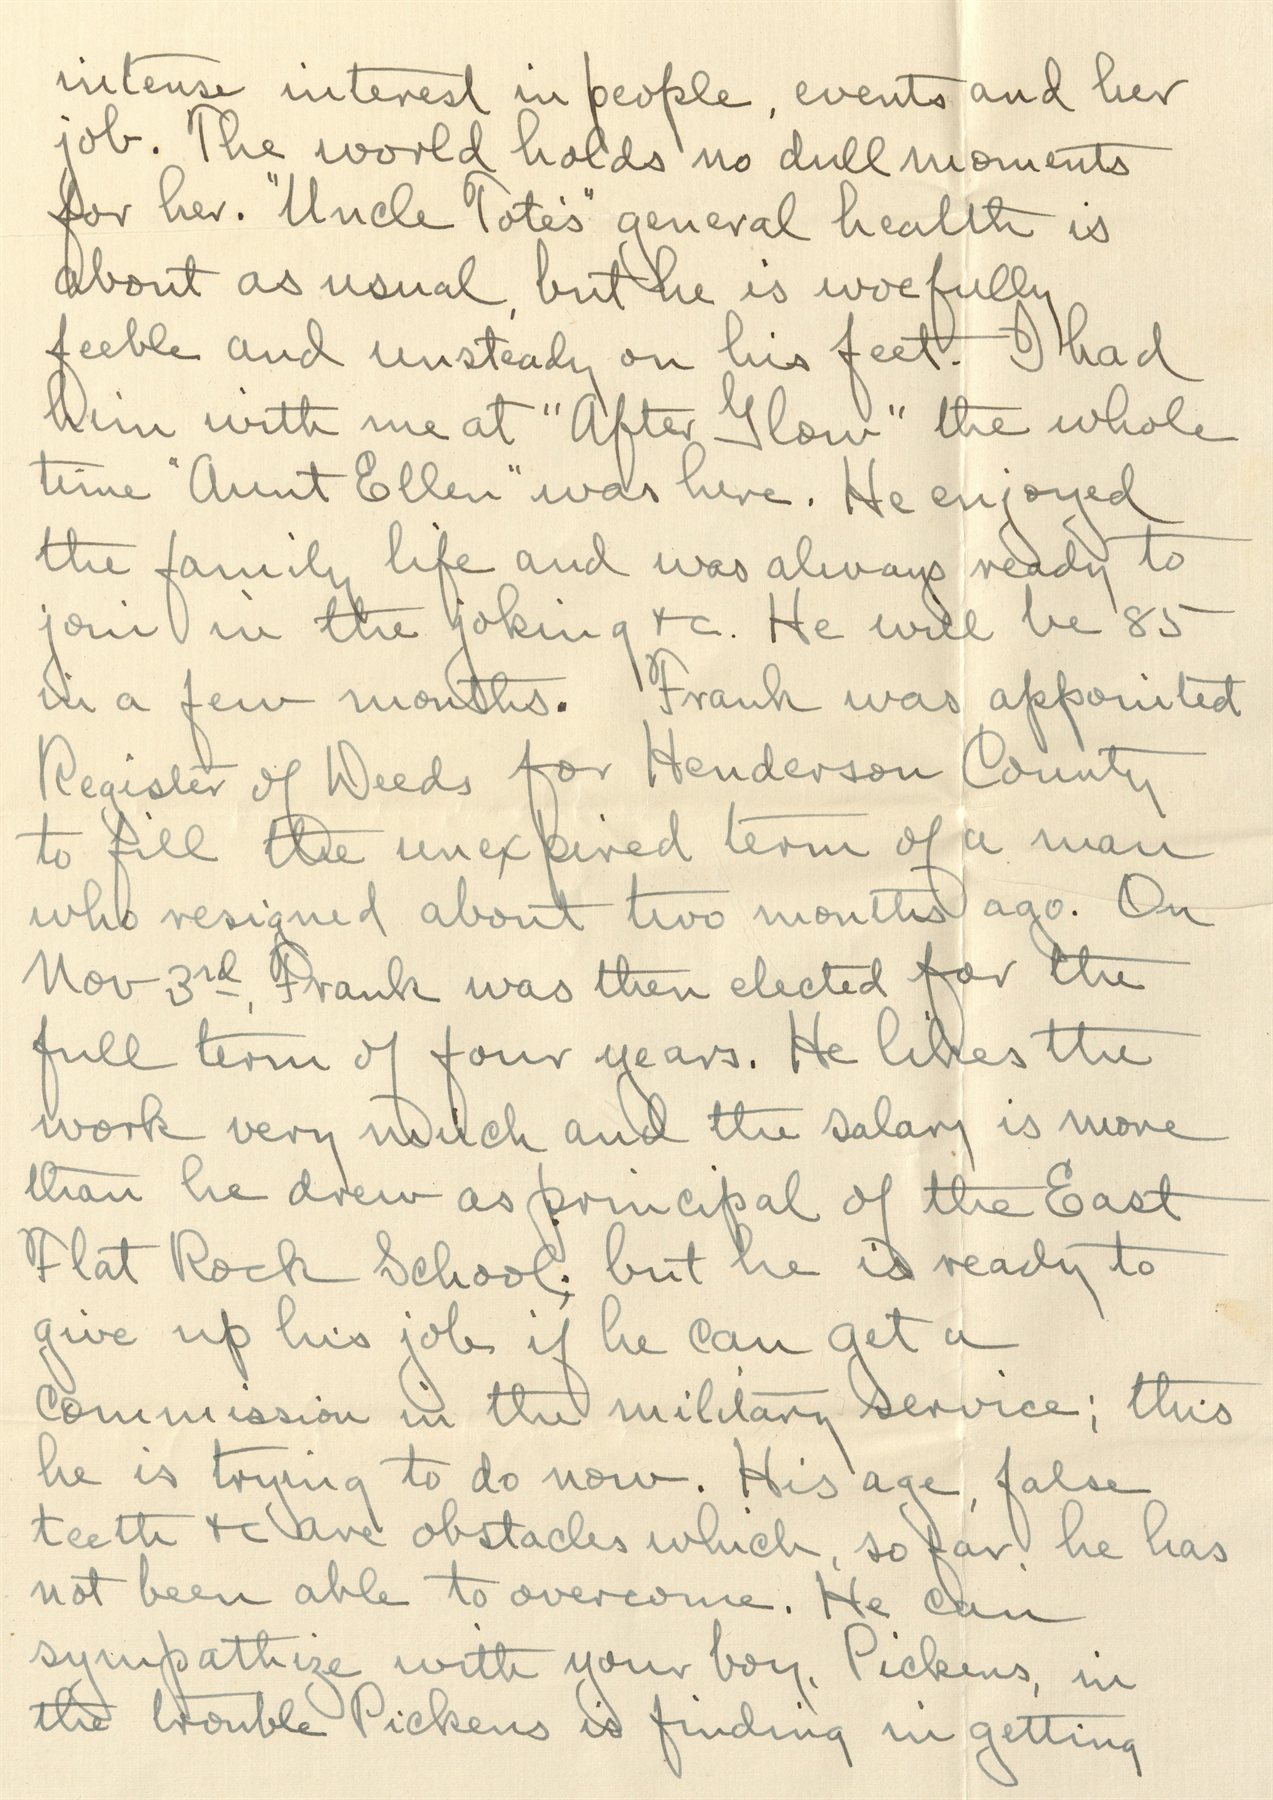 intense interest in people, events and her
job. The world holds no dull moments
for her. "Uncle Tote's" general health is
about as usual, but he is woefully
feeble and unsteady on his feet. I had
him with me at "After Glow" the whole
time "Aunt Ellen" was here. He enjoyed
the family life and was always ready to
join in the joking &c. He will be 85
in a few months. Frank was appointed
Register of Deeds for Henderson County
to fill the unexpired term of a man
who resigned about two months ago. On
Nov 3rd, Frank was then elected for the
full term of four years. He likes the
work very much and the salary is more
than he drew as principal of the East
Flat Rock School; but he is ready to
give up his job if he can get a
commission in the military service; this
he is trying to do now. His age, false
teeth &c are obstacles which, so far, he has
not been able to overcome. He can
sympathize with your boy, Pickens, in
the trouble Pickens is finding in getting